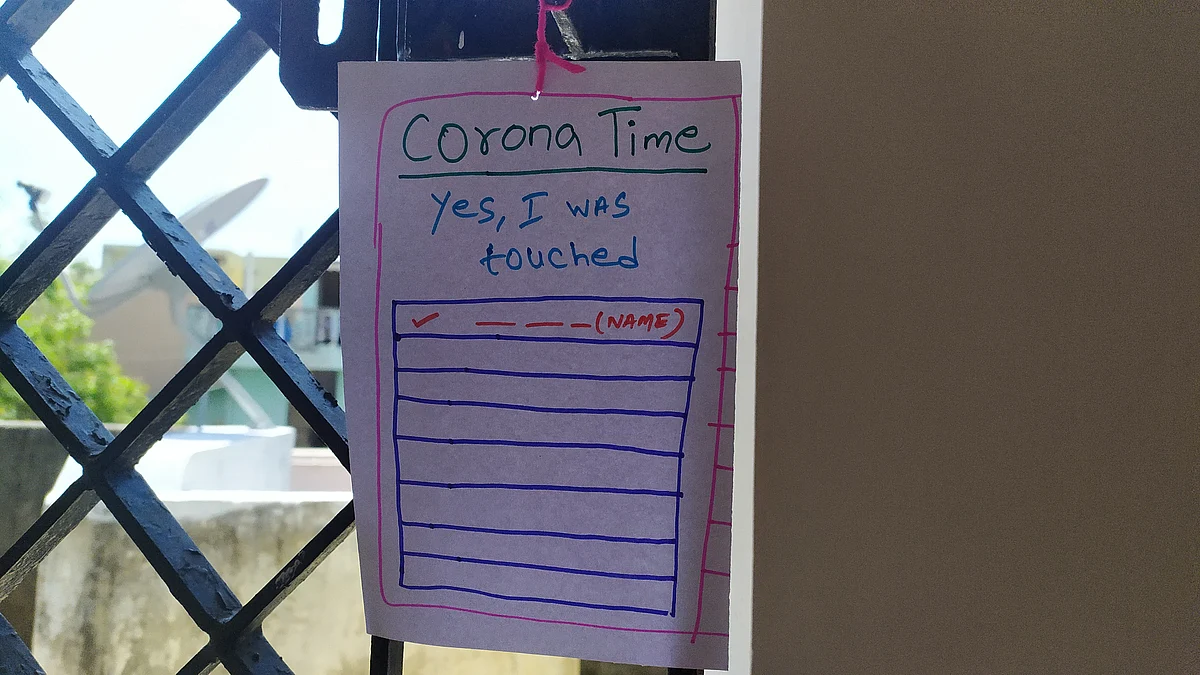 Corona Time
Yes, I WAS
touched
✓ _ _ _ (NAME)